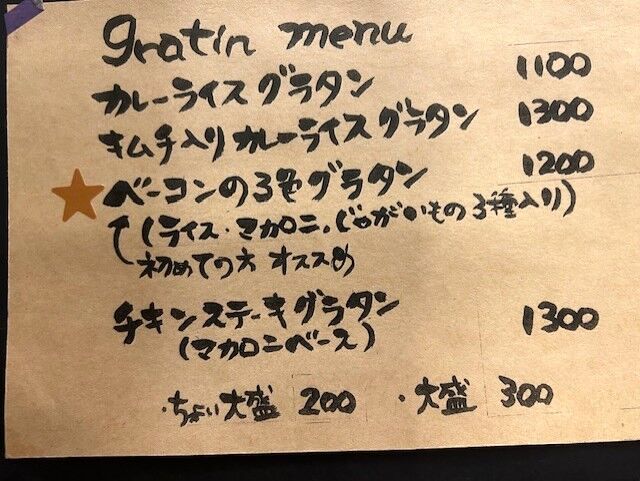 gratin menu
カレーライスグラタン 1100
キムチ入りカレーライスグラタン 1300
★ベーコンの3色グラタン 1200
(ライス・マカロニ、じゃがいもの3種入り)
初めての方 オススメ
チキンステーキグラタン 1300
(マカロニベース)
・ちょい大盛 200 ・大盛 300